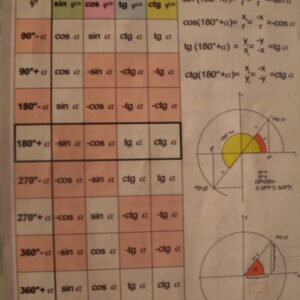 φ sin φ= cos φ= tg φ= ctg φ=
90°-α cos α sin α ctg α tg α
90°+α cos α -sin α -ctg α -tg α
180°-α sin α -cos α -tg α -ctg α
180°+α -sin α -cos α tg α ctg α
270°-α -cos α -sin α ctg α tg α
270°+α -cos α sin α -ctg α -tg α
360°-α -sin α cos α -tg α -ctg α
360°+α sin α cos α tg α ctg α
cos(180°+α)= x'/r = -x/r =-cos
tg (180°+α) = y'/x' = -y/-x =tg
ctg(180°+α)= x'/y' = -x/-y =ctg
180°+α